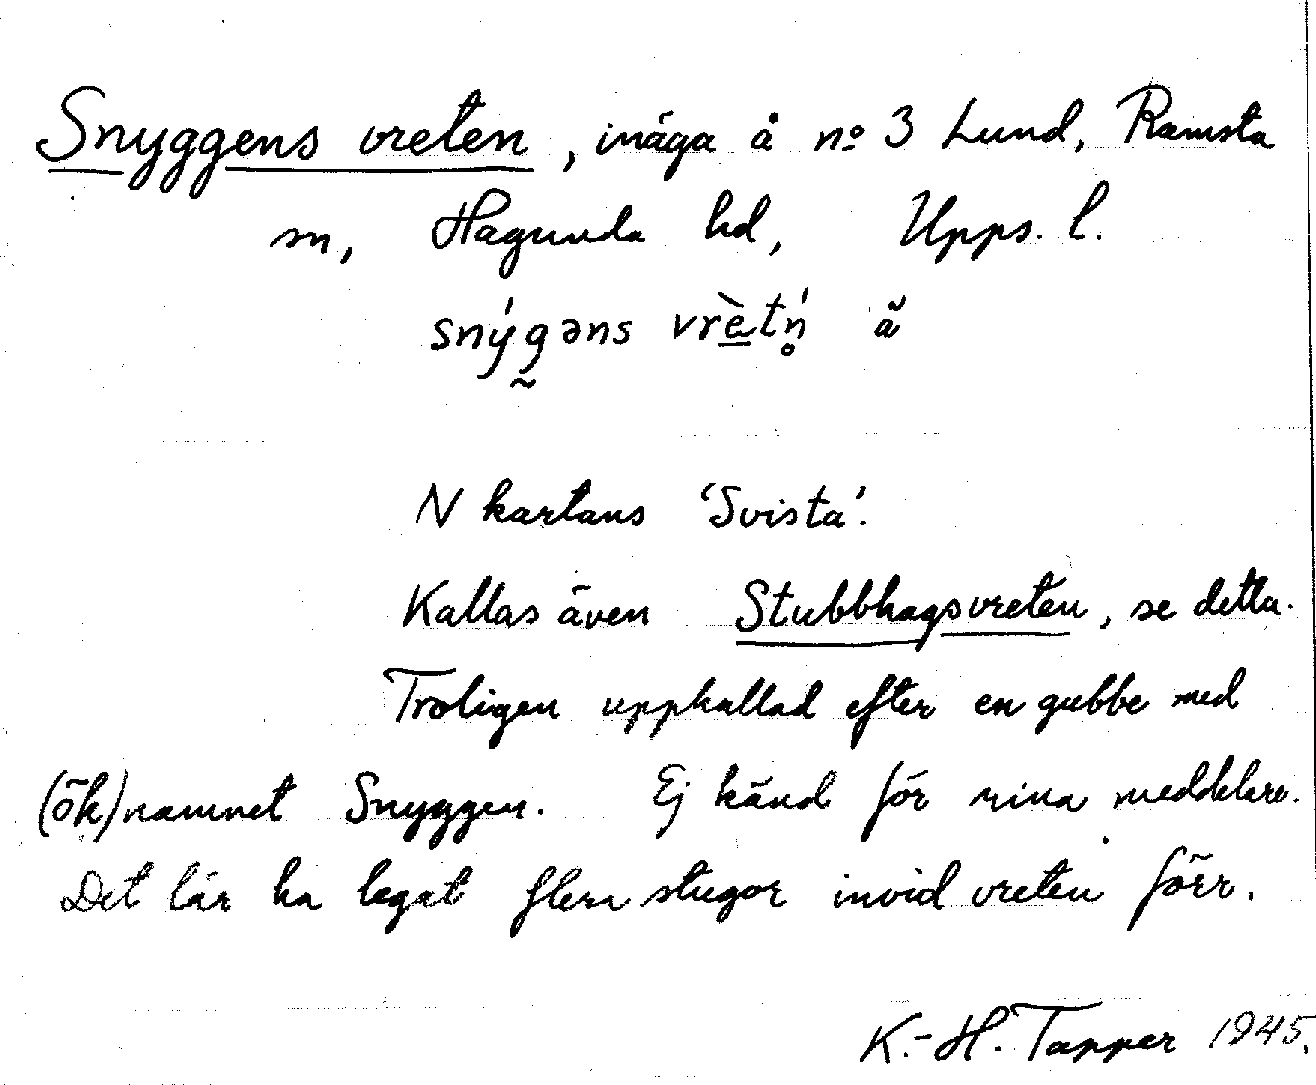 Snyggens vreten, inäga å nº 3 Lund, Ramsta
sn, Hagunda hd, Upps. l.
snýg̰əns vrè̱tń̥ ã
N kartans 'Svista'.
Kallas även Stubbhagsvreten, se detta.
Troligen uppkallad efter en gubbe med
(ök)namnet Snyggen. Ej känd för mina meddelare.
Det lär ha legat flera stugor invid vreten förr.
K.-H. Tapper 1945.